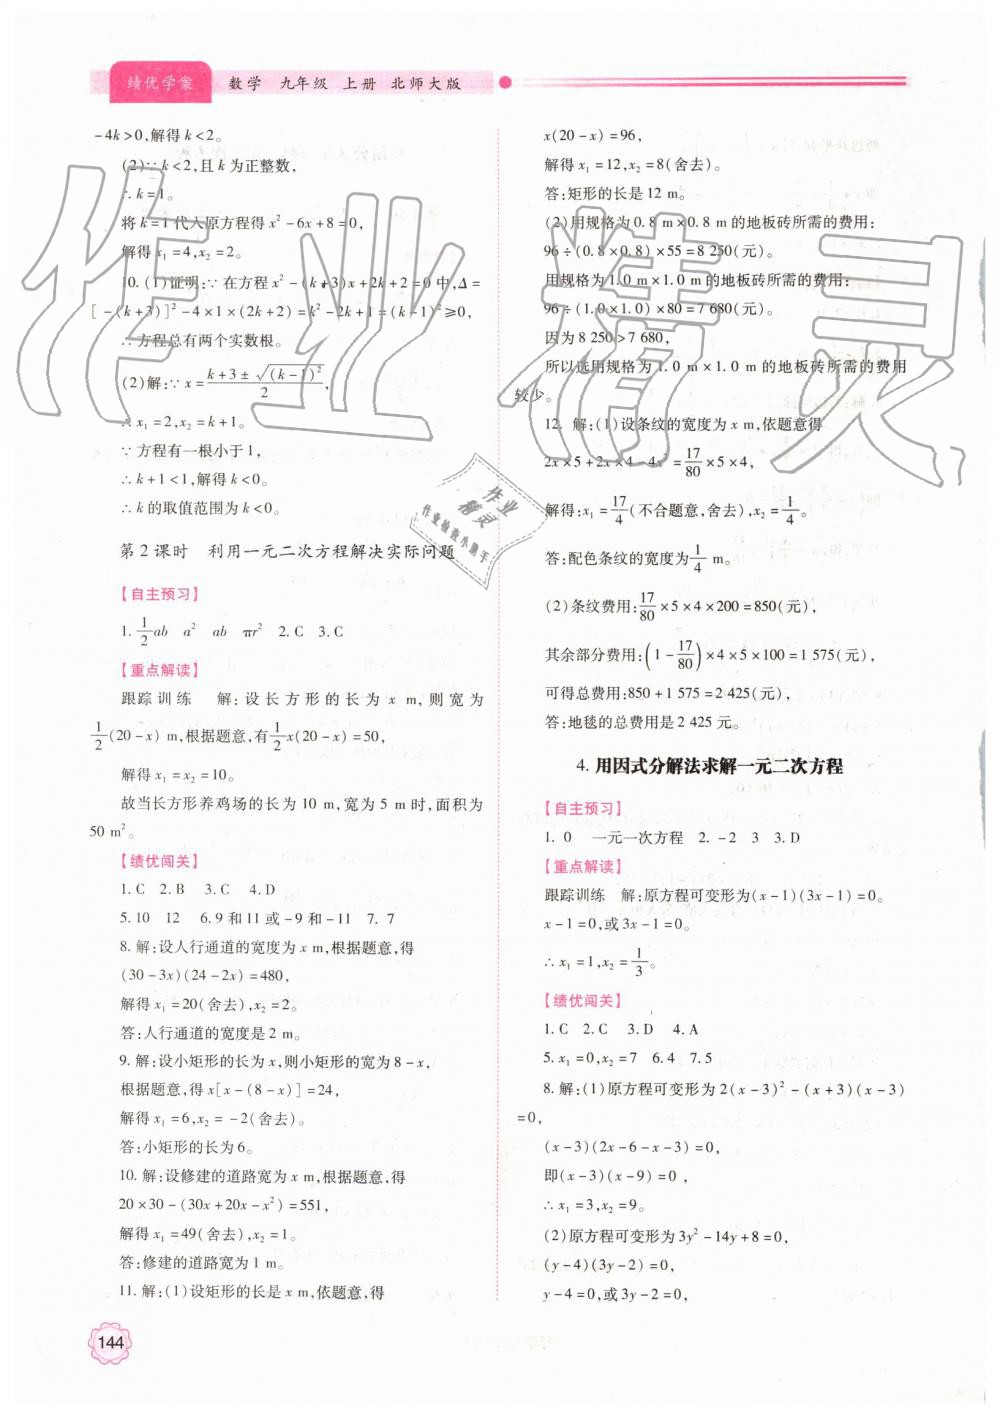 绩优学案 数学 九年级 上册 北师大版
-4k>0,解得 k<2。
(2)∵k<2,且 k 为正整数,
∴k=1。
将 k=1 代入原方程得 x²-6x+8=0,
解得 x₁=4,x₂=2。
10. (1)证明:∵在方程 x²-(k+3)x+2k+2=0 中,Δ=
[-(k+3)]²-4×1×(2k+2)=k²-2k+1=(k-1)²≥0,
∴方程总有两个实数根。
(2)解:∵x=\frac{k+3±√(k-1)²}{2},
∴x₁=2,x₂=k+1。
∵方程有一根小于 1,
∴k+1<1,解得 k<0。
∴k 的取值范围为 k<0。
第 2 课时 利用一元二次方程解决实际问题
【自主预习】
1. \frac{1}{2}ab a² ab πr² 2. C 3. C
【重点解读】
跟踪训练 解:设长方形的长为 x m,则宽为
\frac{1}{2}(20-x) m,根据题意,有\frac{1}{2}x(20-x)=50,
解得 x₁=x₂=10。
故当长方形养鸡场的长为 10 m,宽为 5 m 时,面积为
50 m²。
【绩优闯关】
1. C 2. B 3. C 4. D
5. 10 12 6. 9 和 11 或-9 和-11 7. 7
8. 解:设人行通道的宽度为 x m,根据题意,得
(30-3x)(24-2x)=480,
解得 x₁=20(舍去),x₂=2。
答:人行通道的宽度是 2 m。
9. 解:设小矩形的长为 x,则小矩形的宽为 8-x,
根据题意,得 x[x-(8-x)]=24,
解得 x₁=6,x₂=-2(舍去)。
答:小矩形的长为 6。
10. 解:设修建的道路宽为 x m,根据题意,得
20×30-(30x+20x-x²)=551,
解得 x₁=49(舍去),x₂=1。
答:修建的道路宽为 1 m。
11. 解:(1)设矩形的长是 x m,依题意,得
x(20-x)=96,
解得 x₁=12,x₂=8(舍去)。
答:矩形的长是 12 m。
(2)用规格为 0.8 m×0.8 m 的地板砖所需的费用:
96÷(0.8×0.8)×55=8 250(元)。
用规格为 1.0 m×1.0 m 的地板砖所需的费用:
96÷(1.0×1.0)×80=7 680(元)。
因为 8 250>7 680,
所以选用规格为 1.0 m×1.0 m 的地板砖所需的费用
较少。
12. 解:(1)设条纹的宽度为 x m,依题意得
2x×5+2x×4-4x²=\frac{17}{80}×5×4,
解得:x₁=\frac{17}{4}(不合题意,舍去),x₂=\frac{1}{4}。
答:配色条纹的宽度为\frac{1}{4} m。
(2)条纹费用:\frac{17}{80}×5×4×200=850(元),
其余部分费用:(1-\frac{17}{80})×4×5×100=1 575(元),
可得总费用:850+1 575=2 425(元),
答:地毯的总费用是 2 425 元。
4. 用因式分解法求解一元二次方程
【自主预习】
1. 0 一元一次方程 2. -2 3 3. D
【重点解读】
跟踪训练 解:原方程可变形为(x-1)(3x-1)=0。
x-1=0,或 3x-1=0。
∴x₁=1,x₂=\frac{1}{3}。
【绩优闯关】
1. C 2. C 3. D 4. A
5. x₁=0,x₂=7 6. 4 7. 5
8. 解:(1)原方程可变形为 2(x-3)²-(x+3)(x-3)
=0,
(x-3)(2x-6-x-3)=0,
即(x-3)(x-9)=0,
∴x₁=3,x₂=9。
(2)原方程可变形为 3y²-14y+8=0,
(y-4)(3y-2)=0,
y-4=0,或 3y-2=0,
144
作业精灵
作业
精灵
作业检查小助手